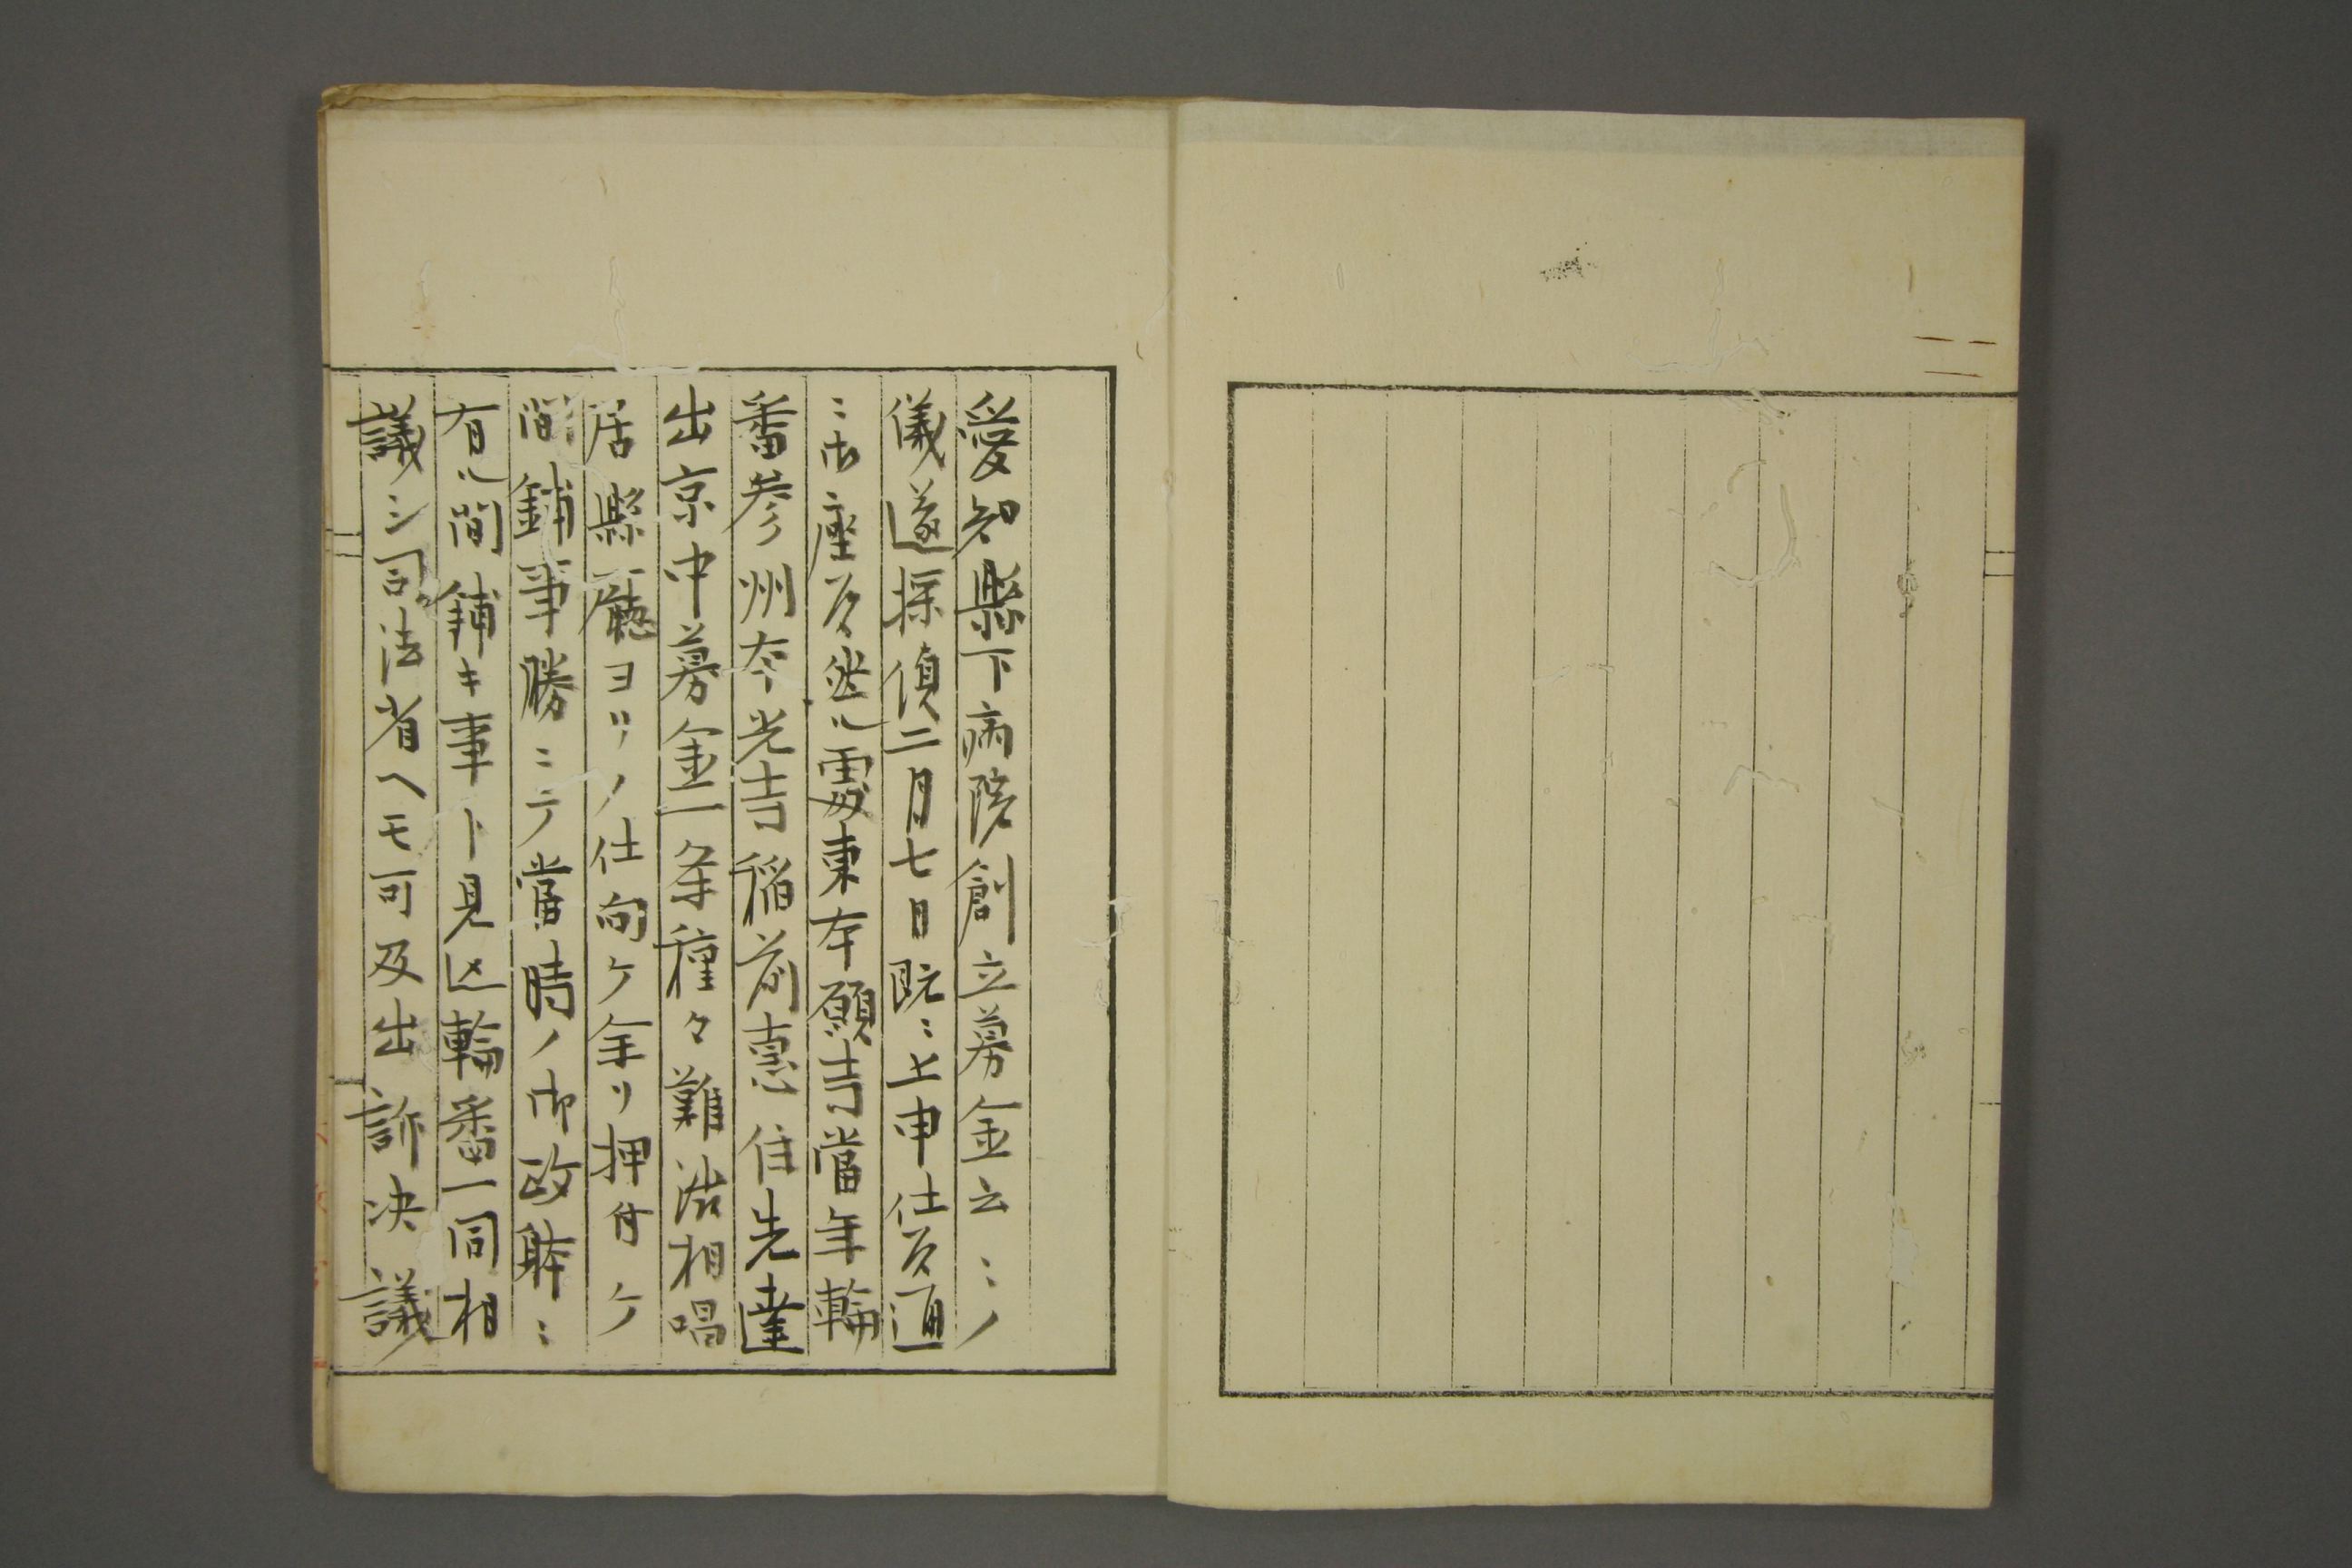 愛知縣下病院創立募金云々ノ
儀遂探偵二月七日既ニ上申仕候通
ニ御座候然ル處東本願寺當年輪
番参州本光寺稲前恵住先達
出京中募金一条種々難渋相唱
居縣廳ヨリノ仕向ケ余リ押付ケ
間鋪事勝ニテ當時ノ御政躰ニ
有ル間鋪キ事ト見込輪番一同相
議シ司法省ヘモ可及出訴決議